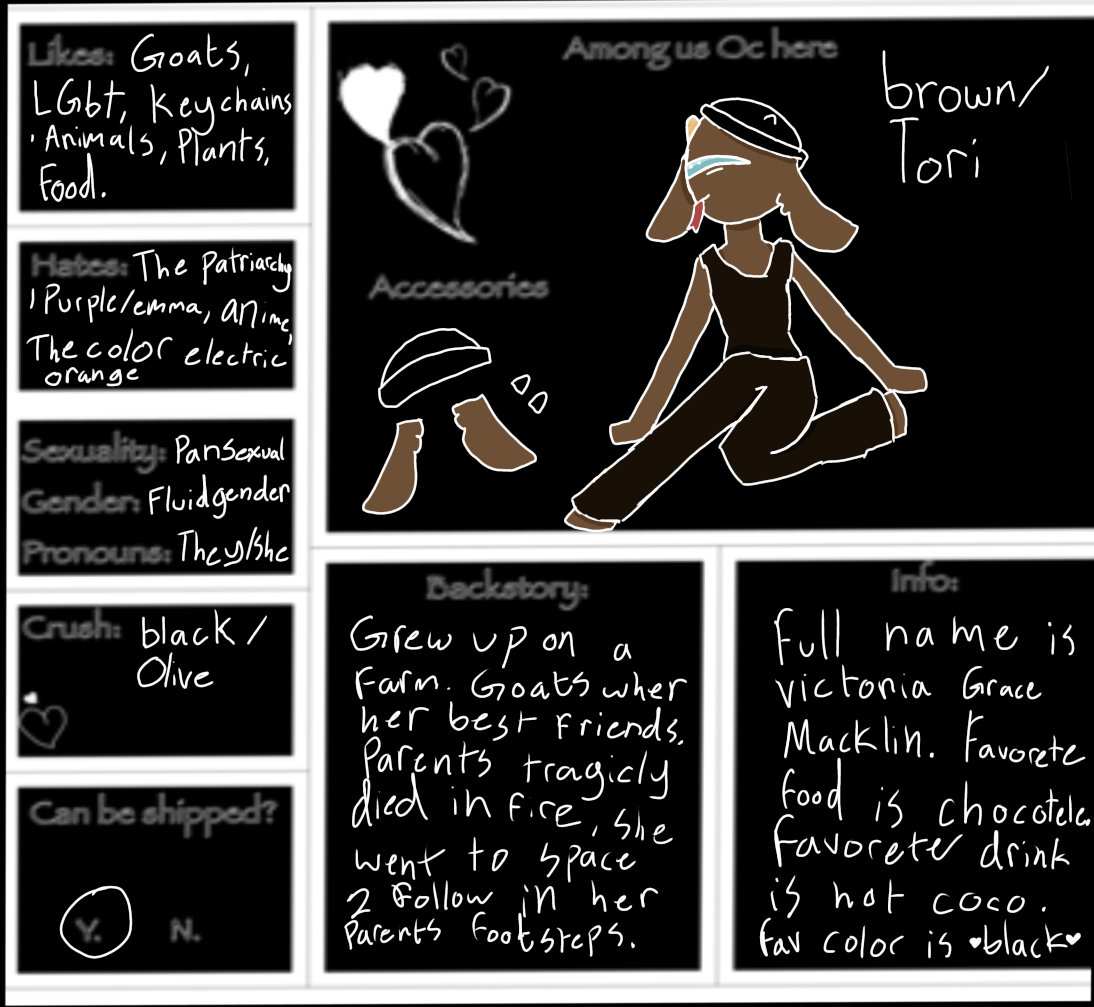 Likes: Goats,
LGbt, Keychains
, Animals, Plants,
Food.
Hates: The Patriarchy
, Purple/emma, anime,
The color electric
orange
Sexuality: Pansexual
Gender: Fluidgender
Pronouns: They/She
Crush: black /
Olive
Can be shipped?
Y. N.
Among us Oc here
brown/
Tori
Accessories
Backstory:
Grew up on a
Farm. Goats wher
her best friends.
Parents tragicly
died in fire, She
went to space
2 Follow in her
Parents footsteps.
Info:
Full name is
victoria Grace
Macklin. Favorete
food is chocotele.
Favorete drink
is hot coco.
fav color is ♥black♥